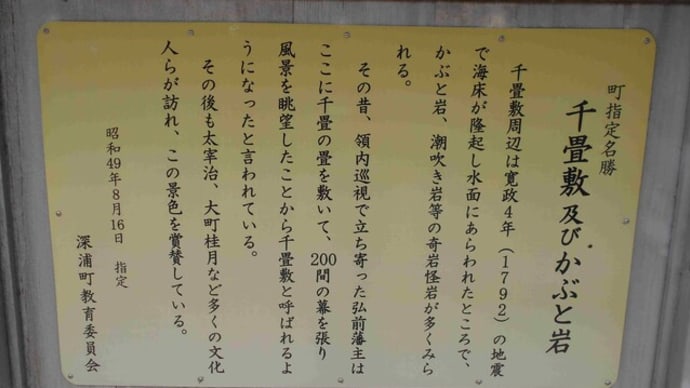 町指定名勝
千畳敷及びかぶと岩
千畳敷周辺は寛政4年（1792）の地震
で海床が隆起し水面にあらわれたところで、
かぶと岩、潮吹き岩等の奇岩怪岩が多くみら
れる。
その昔、領内巡視で立ち寄った弘前藩主は
ここに千畳の畳を敷いて、200間の幕を張り
風景を眺望したことから千畳敷と呼ばれるよ
うになったと言われている。
その後も太宰治、大町桂月など多くの文化
人らが訪れ、この景色を賞賛している。
昭和49年8月16日　指定
深浦町教育委員会